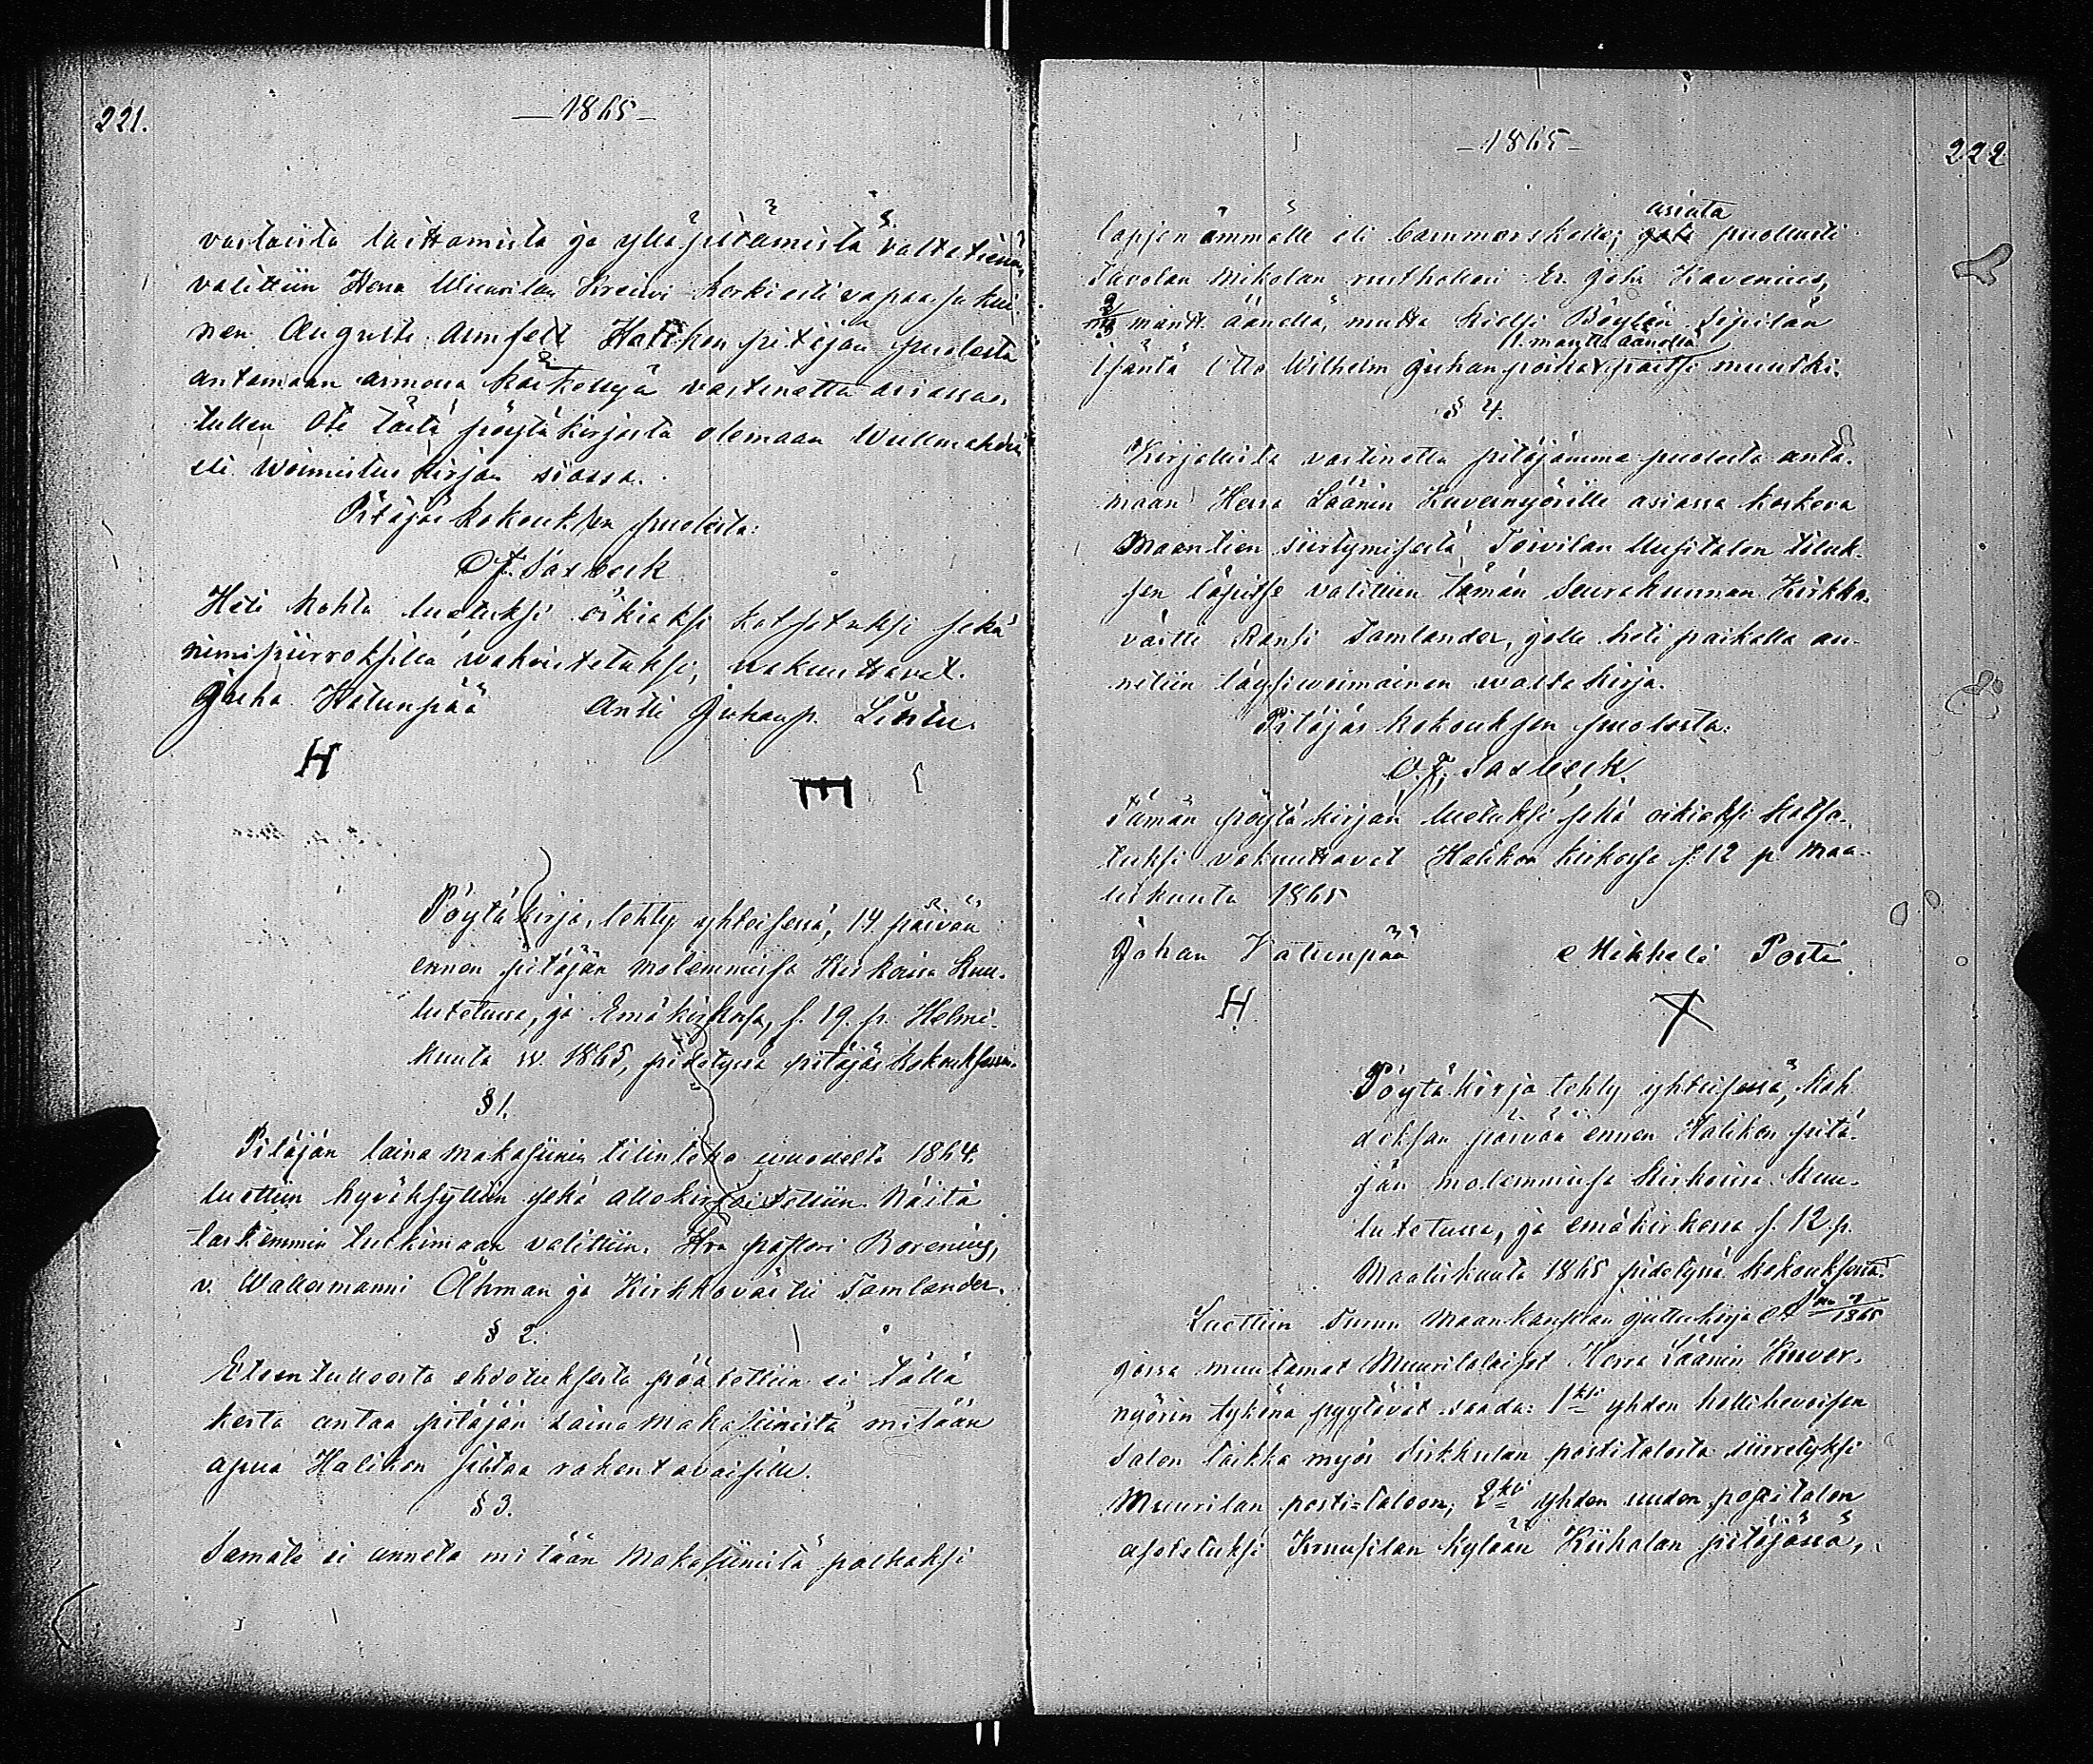 221.
—1865—
vastaista laittamista ja ylläpitämistä valtatien,
valittiin Herra Wiurilan Kreiwi korkiasti vapaasu kui-
nen Augusti Armfelt Halikon pitäjän puolesta
antamaan armossa käskettyä vastinetta asiassa,
tullen Ote tästä pöytäkirjasta olemaan Wullmahdin
eli Woimistus kirjan siassa.
Pitäjäs kokouksen puolesta:
O.F. Saxbeck
Heti kohta luetuksi oikiaksi katsotuksi sekä
nimipiirroksilla wahvistetuksi, wakuuttavat.
Juha Hatunpää Antti Juhanp. Lintu.
H
Pöytäkirja, tehty yhteisessä, 14 päivää
ennen pitäjän molemmissa Kirkoissa kuu-
lutetussa, ja Emäkirkossa, s. 19. p. Helmi-
kuuta w. 1865, pidetyssä pitäjäs kokouksessa.
§ 1.
Pitäjän laina makasiinin tilinteko vuodelta 1864.
luettiin hyväksyttiin sekä allekirjoitettiin. Näitä
tarkemmin tutkimaan valittiin. Hra pastori Rorenius,
v. Wallesmanni Öhman ja Kirkkoväärti Tamlander.
§ 2.
Eteentulleesta ehdotuksesta päätettiin ei tällä
kerta antaa pitäjän Laina makasiinista mitään
apua Halikon siltaa rakentavaisille.
§ 3.
Samate ei anneta mitään Makasiinista palkaksi
—1865—
222
lapsen ämmälle eli barnmorskalle; asiata puollusti
Tavolan Mikolan rusthollari Er. Joh. Kavenius,
mantt. äänellä, mutta kielsi Böylän Sipilän
11. mantt. äänellä
Isäntä Otto Wilhelm Juhanpoika paitsi muutki.
§ 4.
Kirjallista vastinetta pitäjämme puolesta anta-
maan Herra Läänin Kuvernyörille asiassa koskeva
Maantien siirtymisestä Toivilan Uusitalon tiluk-
sen läpitse valittiin tämän Seurakunnan Kirkko-
väärtti Ransi Tamlander, jolle heti paikalla an-
nettiin täysiwoimainen waltakirja.
Pitäjäs kokouksen puolesta:
O.F. Saxbeck.
Tämän pöytäkirjan luetuksi sekä oikiaksi katso-
tuksi vakuuttavat Halikon kirkossa s. 12 p. Maa-
liskuuta 1865
Johan Hatunpää Mikkeli Posti
H
Pöytäkirja tehty yhteisessä, kah-
deksan päivää ennen Halikon pitä-
jän molemmissa kirkoissa kuu-
lutetussa, ja emäkirkossa s. 12 p.
Maaliskuuta 1865 pidetyssä kokouksessa.
Luettiin Turun Maankanslian
jossa muutamat Muurilalaiset Herra Läänin Kuver-
nyörin tykönä pyytävät saada: 1ksi yhden hollihevoisen
talon taikka myös Kirkkulan postitalosta siirretyksi
Muurilan posti-taloon; 2ksi yhden uuden postitalon
asetetuksi Kruusilan kylään Kiikalan pitäjässä,